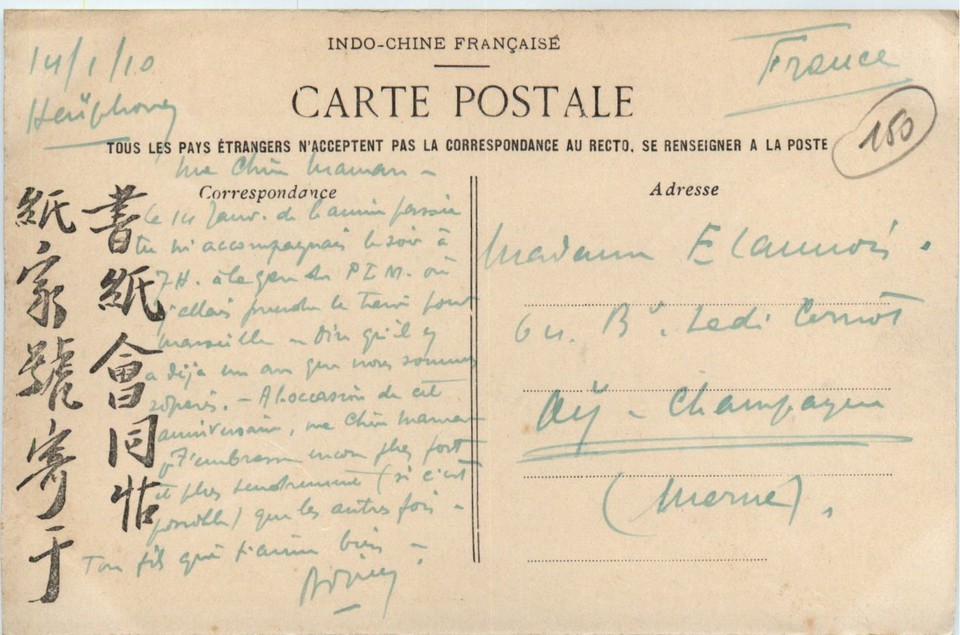 14/1/10
France
INDO-CHINE FRANÇAISE
CARTE POSTALE
150
TOUS LES PAYS ÉTRANGERS N'ACCEPTENT PAS LA CORRESPONDANCE AU RECTO, SE RENSEIGNER A LA POSTE
Correspondance
Ma Chère Maman –
Le 14 Janv. de l'année passée
tu m'accompagnais le soir à
7H. à la gare du P L M. où
j'allais prendre le train pour
Marseille – Dire qu'il y
a déjà un an que nous sommes
séparés. – A l'occasion de cet
anniversaire, ma Chère Maman
je t'embrasse encore plus fort
et plus tendrement (si c'est
possible) que les autres fois –
Ton fils qui t'aime bien –
書紙會同帖
紙家號寄于
Adresse
Madame E
Bd. Sadi Carnot
Aÿ – Champagne
(Marne).